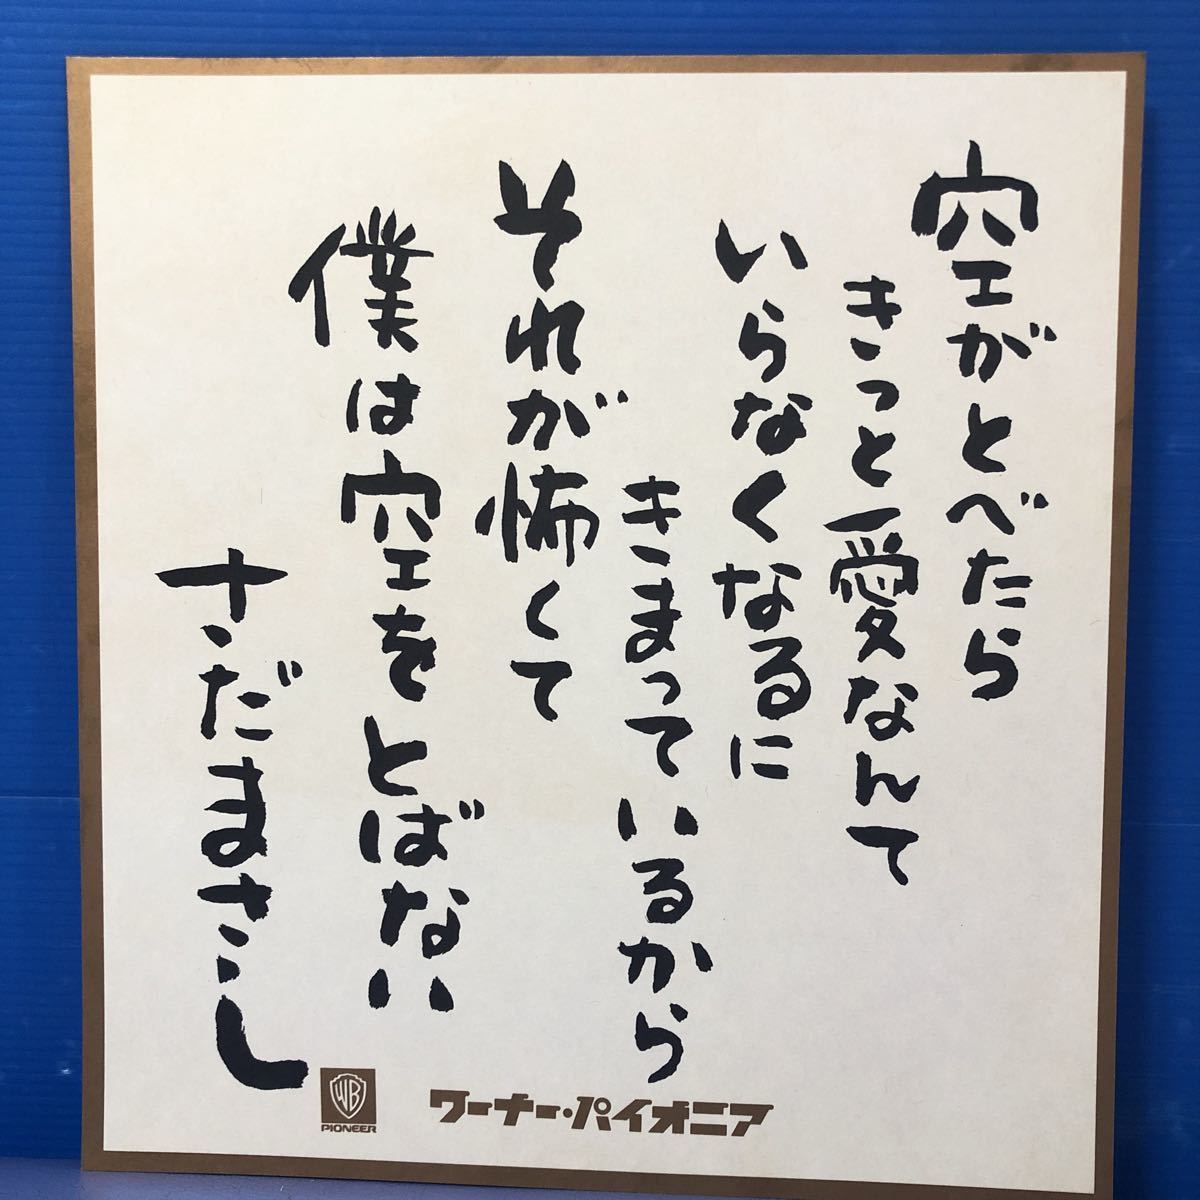 空がとべたら
きっと愛なんて
いらなくなるに
きまっているから
それが怖くて
僕は空をとばない
さだまさし
WB
PIONEER
ワーナー・パイオニア